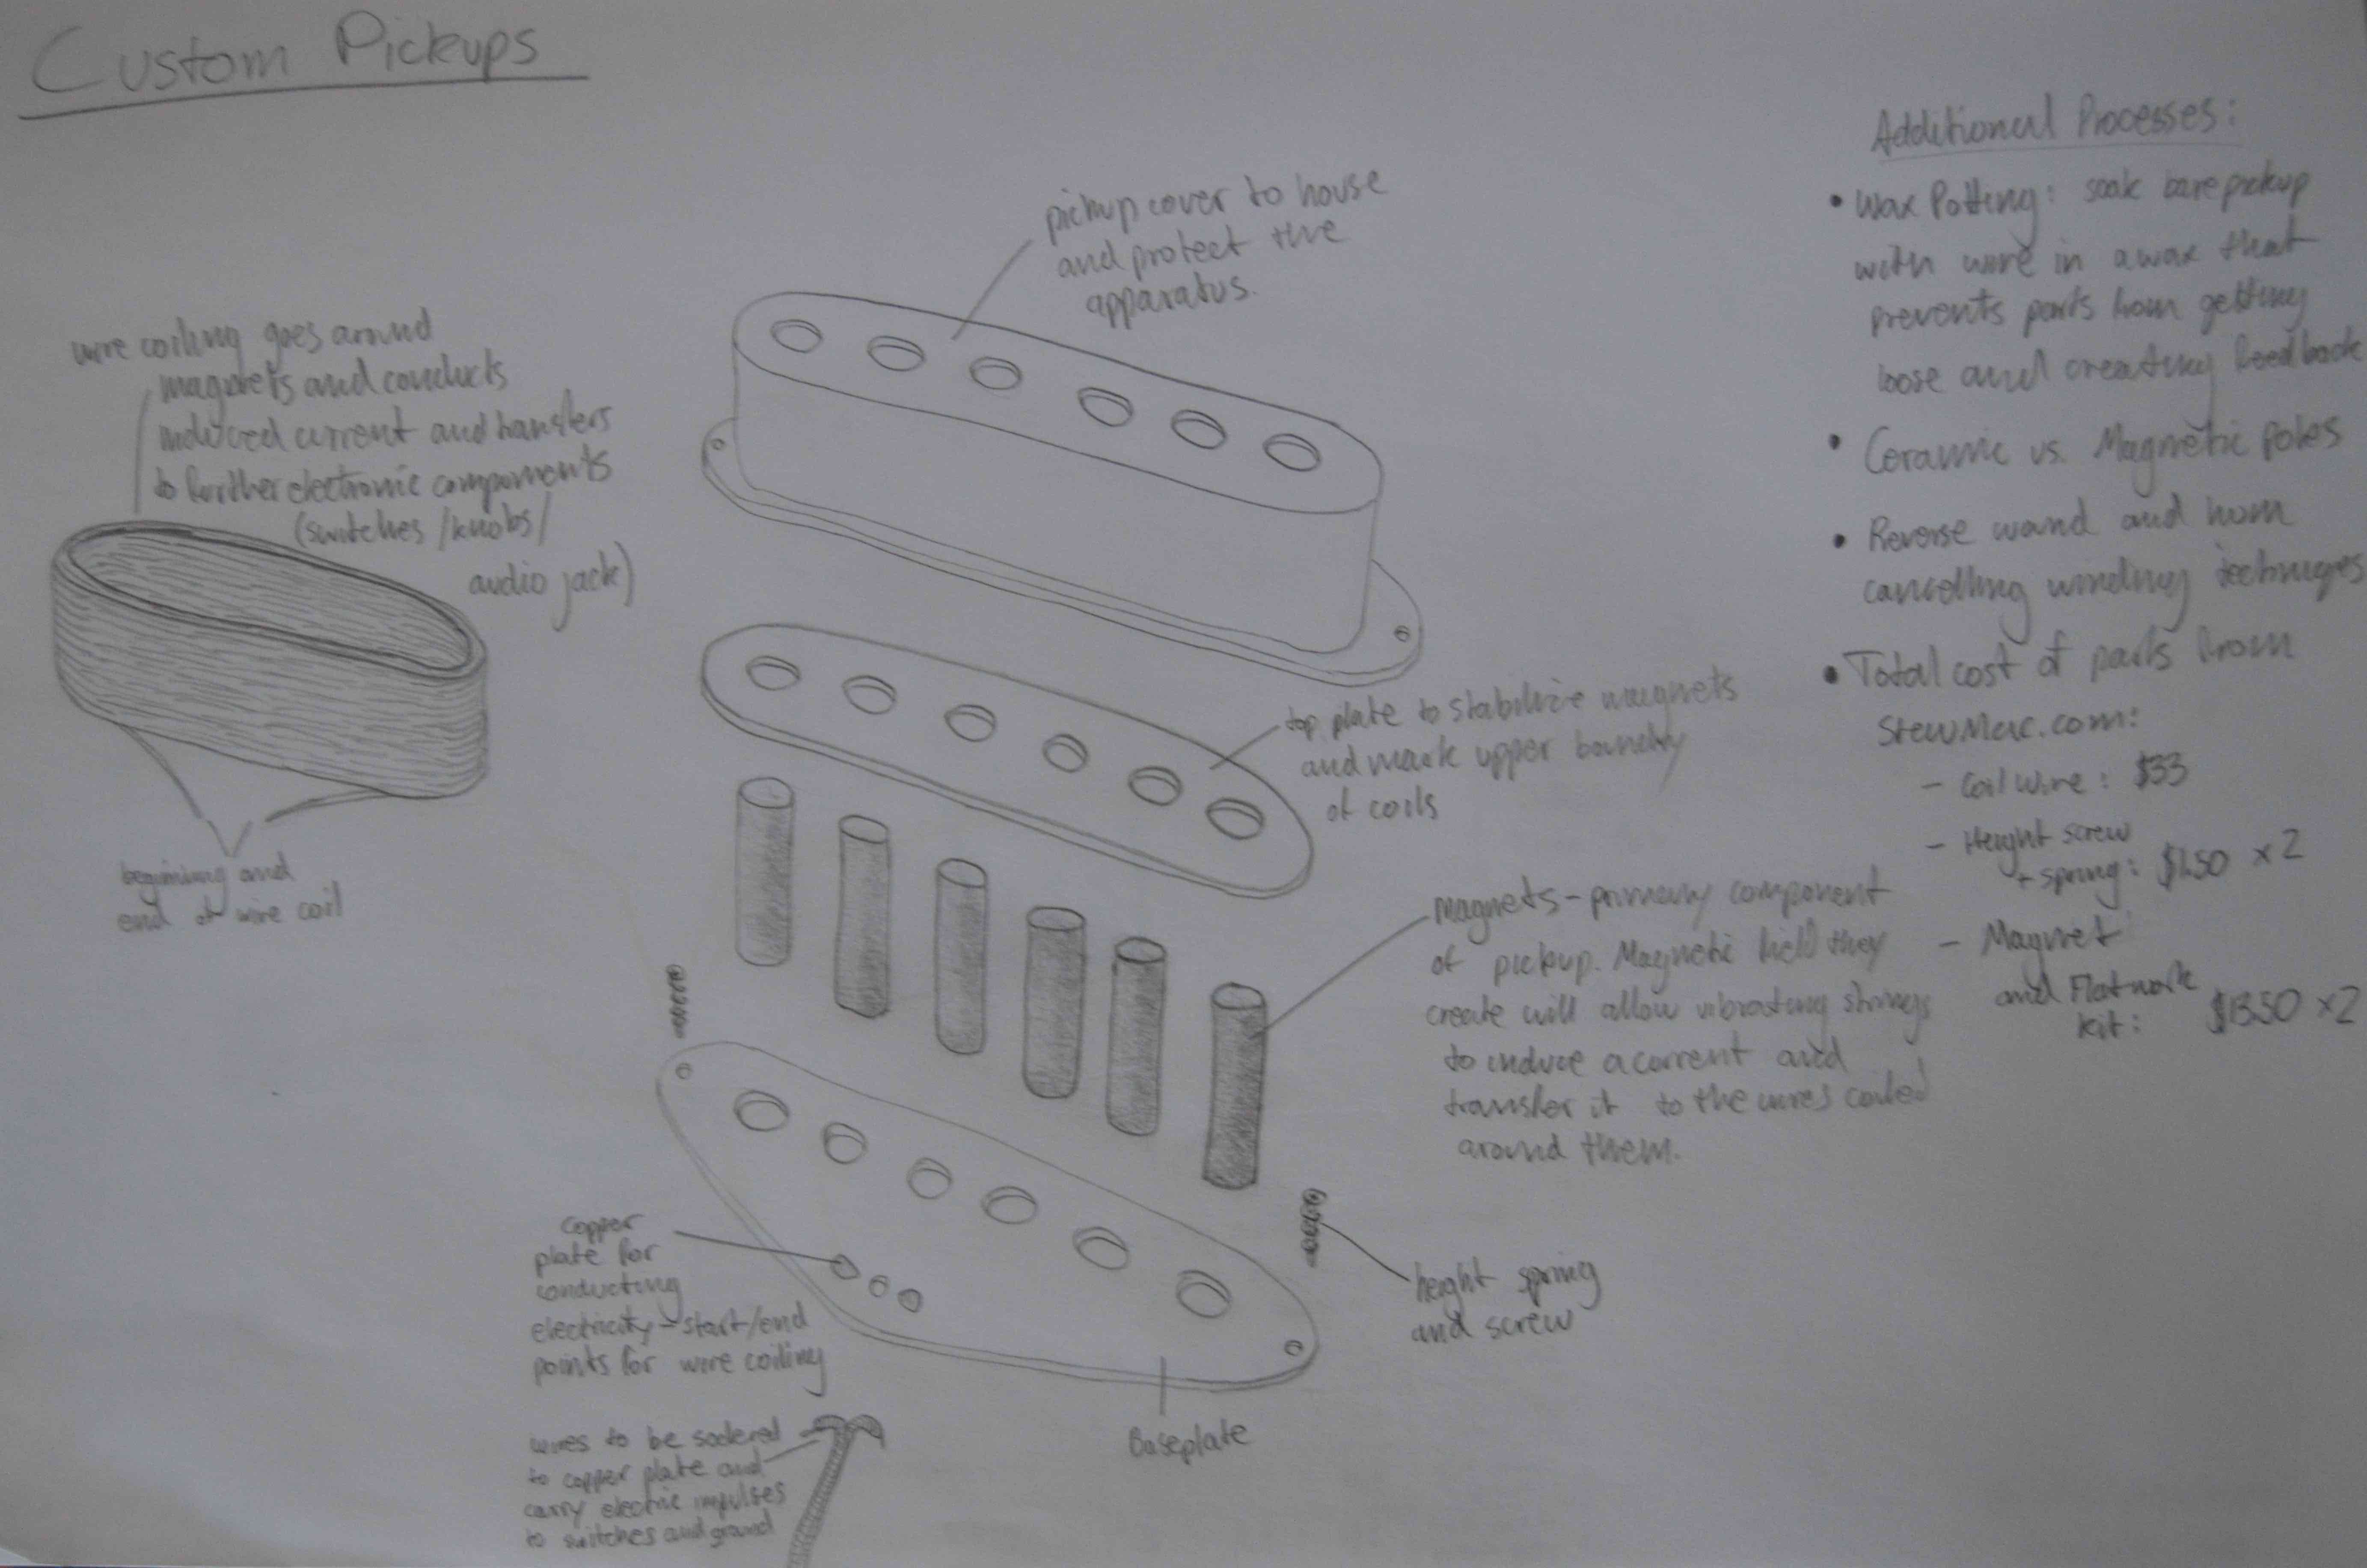 Custom Pickups
pickup cover to house
and protect the
apparatus.
wire coiling goes around
magnets and conducts
induced current and transfers
to further electronic components
(switches/knobs/
audio jack)
beginning and
end of wire coil
top plate to stabilize magnets
and mark upper boundry
of coils
Magnets - primary component
of pickup. Magnetic field they
create will allow vibrating strings
to induce a current and
transfer it to the wires coiled
around them.
height spring
and screw
Copper
plate for
conducting
electricity - start/end
points for wire coiling
Baseplate
wires to be sodered
to copper plate and
carry electric impulses
to switches and ground
Additional Processes:
• Wax Potting: soak bare pickup
with wire in a wax that
prevents parts from getting
loose and creating feedback
• Ceramic vs. Magnetic poles
• Reverse wound and hum
cancelling winding techniques
• Total cost of parts from
StewMac.com:
- Coil wire: $33
- Height screw
+ spring: $1.50 x 2
- Magnet
and Flatwork
kit: $13.50 x 2